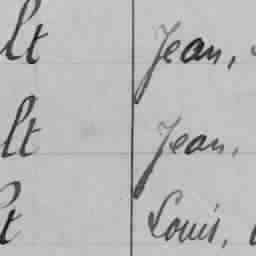 lt Jean,
lt Jean.
lt Louis,